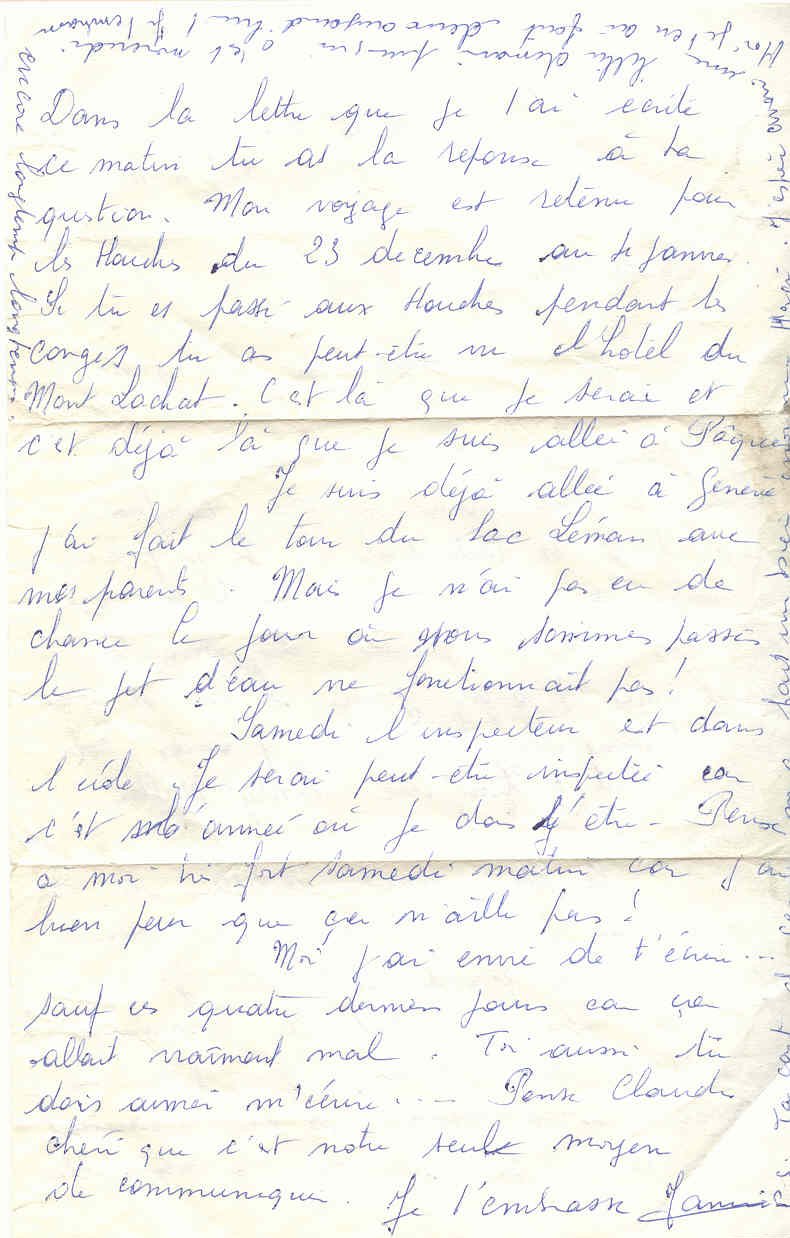 Dans la lettre que je t'ai écrite
ce matin tu as la réponse à ta
question. Mon voyage est retenu pour
les Houches du 23 decembre au 4 janvier.
Si tu es passé aux Houches pendant les
congés tu as peut-être vu l'hôtel du
Mont Lachat. C'est là que je serai et
c'est déjà là que je suis allée à Pâques
Je suis déjà allée à Genève
j'ai fait le tour du lac Léman avec
mes parents. Mais je n'ai pas eu de
chance le jour où nous sommes passés
le jet d'eau ne fonctionnait pas!
Samedi l'inspecteur est dans
l'école. Je serai peut-être inspectée car
c'est l'année où je dois l'être - Pense
à moi très fort samedi matin car j'ai
bien peur que ça n'aille pas!
Moi j'ai envie de t'écrire...
sauf ces quatre derniers jours car ça
allait vraiment mal. Toi aussi tu
dois aimer m'écrire.... Pense Claude
chéri que c'est notre seul moyen
de communiquer. Je t'embrasse Jannie
P.S. Ta carte
merci. J'espère avoir
une lettre demain
Moi je t'en ai fait deux aujourd'hui! Je t'embrasse
encore longtemps longtemps.